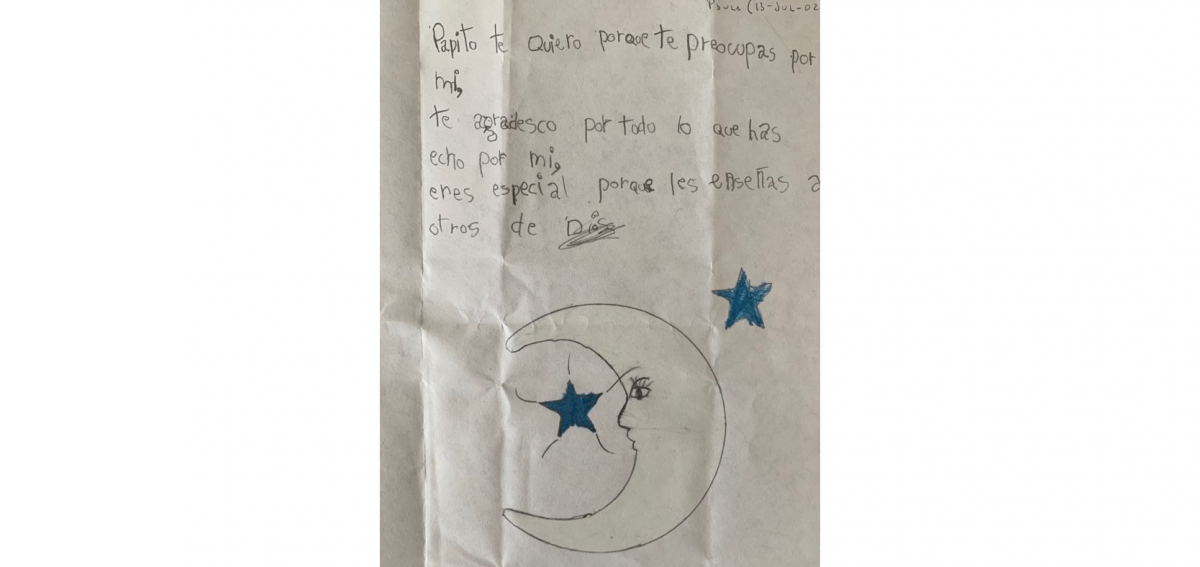 (13-JUL-02
Papito te quiero porque te preocupas por
mi,
te agradesco por todo lo que has
echo por mi,
eres especial porque les enseñas a
otros de Dios